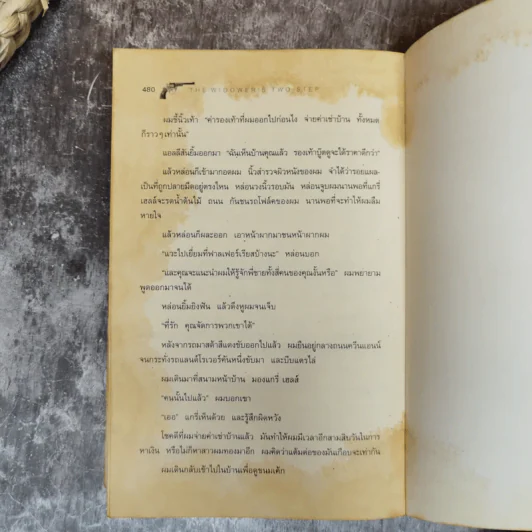 480 THE WIDOWER'S TWO-STEP
ผมชี้นิ้วเท้า "ค่ารองเท้าที่ผมออกไปก่อนไง จ่ายค่าเช่าบ้าน ทั้งหมด
ก็ราวๆเท่านั้น"
แอลลิสันยิ้มออกมา "ฉันเห็นบ้านคุณแล้ว รองเท้าบู๊ตดูจะได้ราคาดีกว่า"
แล้วหล่อนก็เข้ามากอดผม นิ้วสำรวจผิวหนังของผม จำได้ว่ารอยแผล
เป็นที่ถูกปลายมีดอยู่ตรงไหน หล่อนวงนิ้วรอบมัน หล่อนจูบผมนานพอที่แกรี่
เฮลส์จะรดน้ำต้นไม้ ถนน กันชนรถโฟล์คของผม นานพอที่จะทำให้ผมลืม
หายใจ
แล้วหล่อนก็ผละออก เอาหน้าผากมาชนหน้าผากผม
"แวะไปเยี่ยมที่ฟาลเฟอร์เรียสบ้างนะ" หล่อนบอก
"และคุณจะแนะนำผมให้รู้จักพี่ชายทั้งสี่คนของคุณงั้นหรือ" ผมพยายาม
พูดออกมาจนได้
หล่อนยิ้มยิงฟัน แล้วดึงหูผมจนเจ็บ
"ที่รัก คุณจัดการพวกเขาได้"
หลังจากรถมาสด้าสีแดงขับออกไปแล้ว ผมยืนอยู่กลางถนนควีนแอนน์
จนกระทั่งรถแลนด์โรเวอร์คันหนึ่งขับมา และบีบแตรไล่
ผมเดินมาที่สนามหน้าบ้าน มองแกรี่ เฮลส์
"คนนั้นไปแล้ว" ผมบอกเขา
"เออ" แกรี่เห็นด้วย และรู้สึกผิดหวัง
โชคดีที่ผมจ่ายค่าเช่าบ้านแล้ว มันทำให้ผมมีเวลาอีกสามสิบวันในการ
หาเงิน หรือไม่ก็ตาสาวผมทองมาอีก ผมคิดว่าแต้มต่อของมันเกือบจะเท่ากัน
ผมเดินกลับเข้าไปในบ้านเพื่อดูขนมเค้ก